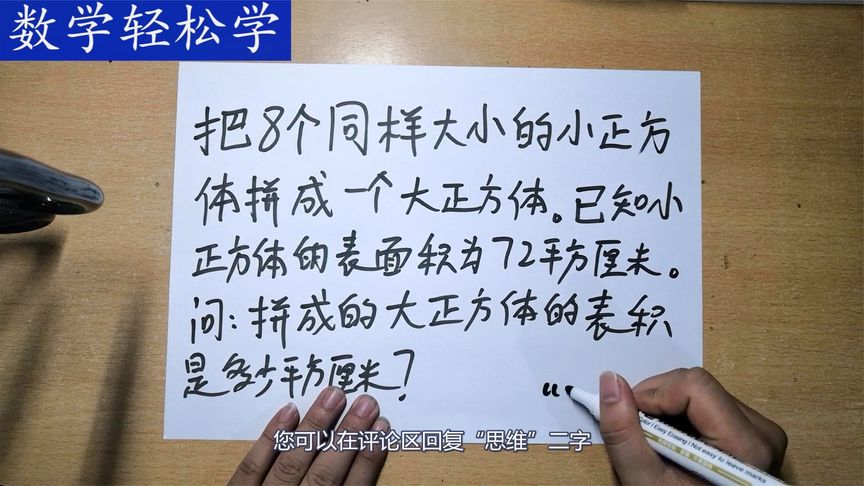 数学轻松学
把8个同样大小的小正方
体拼成一个大正方体。已知小
正方体的表面积为72平方厘米。
问:拼成的大正方体的表积
是多少平方厘米?
“
您可以在评论区回复“思维”二字